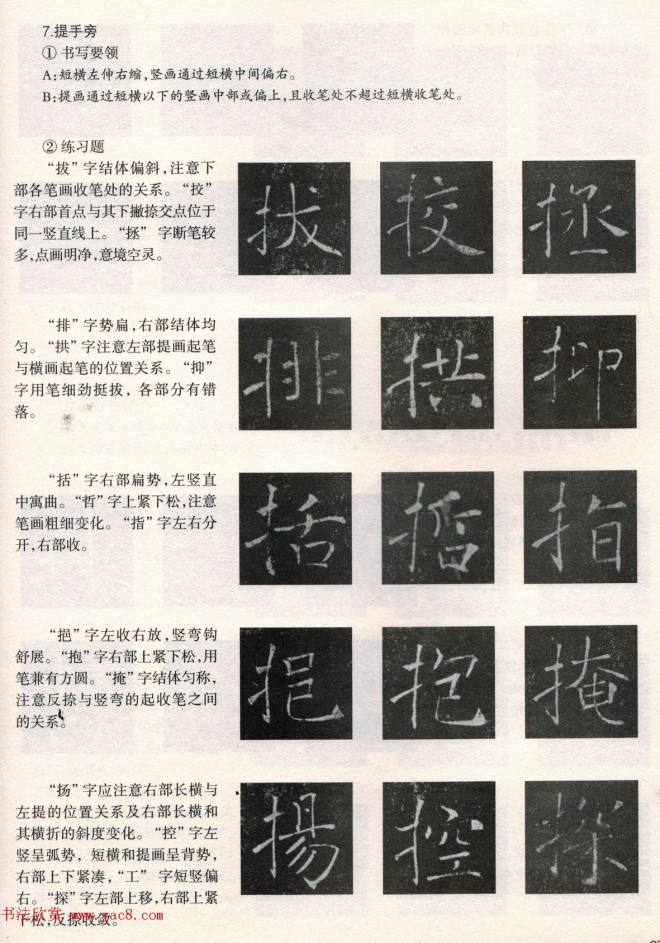 7.提手旁
① 书写要领
A:短横左伸右缩,竖画通过短横中间偏右。
B:提画通过短横以下的竖画中部或偏上,且收笔处不超过短横收笔处。
② 练习题
“拔”字结体偏斜,注意下
部各笔画收笔处的关系。“挍”
字右部首点与其下撇捺交点位于
同一竖直线上。“拯” 字断笔较
多,点画明净,意境空灵。
拔 挍 拯
“排”字势扁,右部结体均
匀。“拱”字注意左部提画起笔
与横画起笔的位置关系。“抑”
字用笔细劲挺拔, 各部分有错
落。
排 拱 抑
“括”字右部扁势,左竖直
中寓曲。“哲”字上紧下松,注意
笔画粗细变化。“指”字左右分
开,右部收。
括 哲 指
“挹”字左收右放,竖弯钩
舒展。“抱”字右部上紧下松,用
笔兼有方圆。“掩”字结体匀称,
注意反捺与竖弯的起收笔之间
的关系。
挹 抱 掩
“扬”字应注意右部长横与
左提的位置关系及右部长横和
其横折的斜度变化。“控”字左
竖呈弧势, 短横和提画呈背势,
右部上下紧凑,“工” 字短竖偏
右。“探”字左部上移,右部上紧
下松,反捺收敛。
揚 控 探
书法欣赏 www.yac8.com